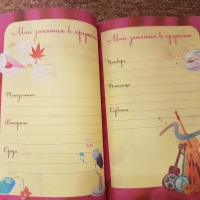 Мои занятия в кружках
Понедельник
Вторник
Среда
Мои занятия в кружках
Четверг
Пятница
Суббота